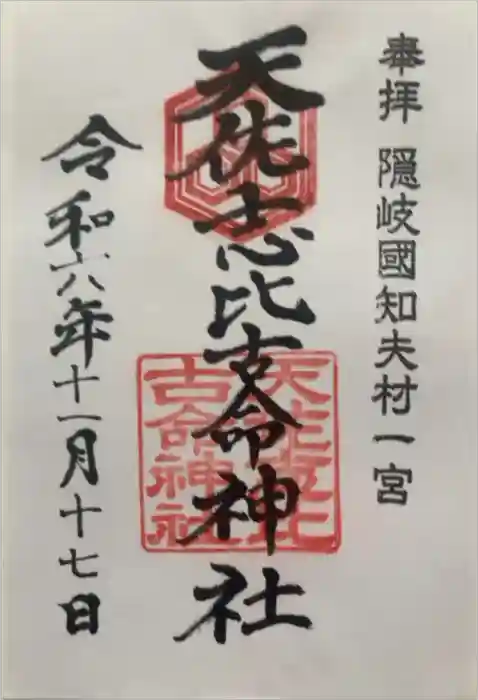 奉拝 隠岐國知夫村一宮
天佐志比古命神社
令和六年十一月十七日
天佐志比
古命神社